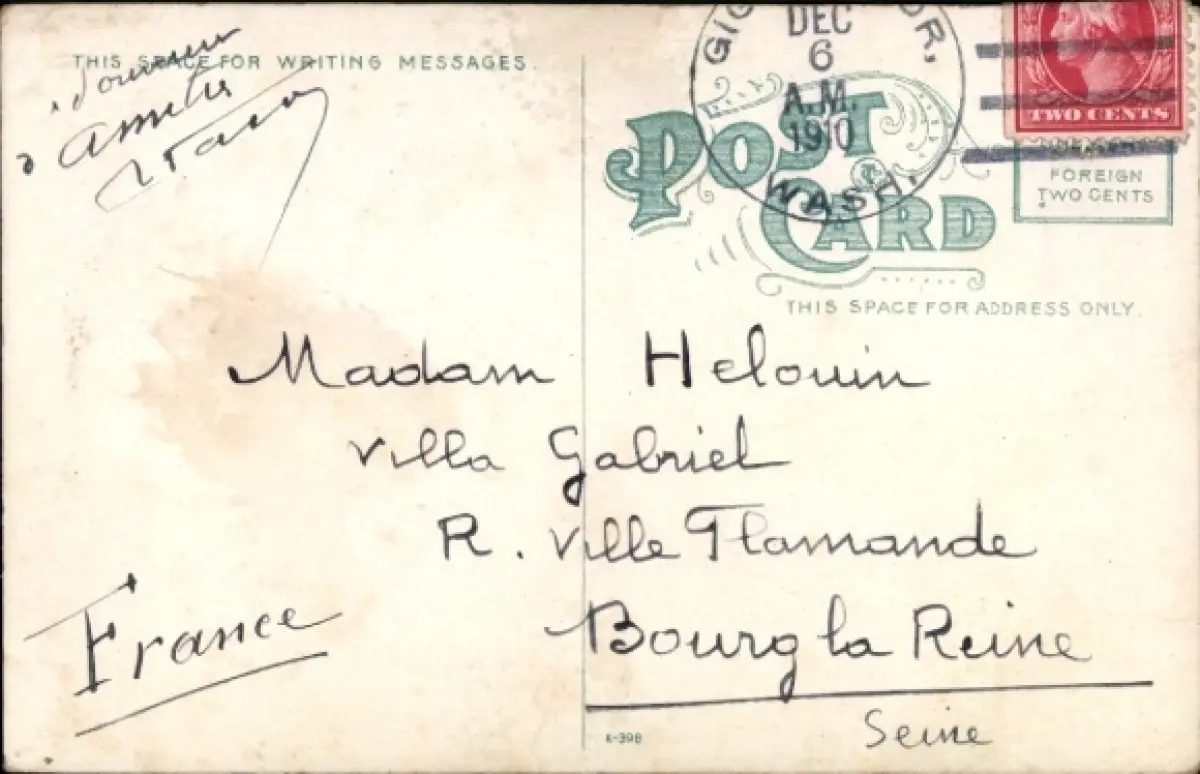 THIS SPACE FOR WRITING MESSAGES.
amitié
DEC
6
A.M.
1910
WASH.
TWO CENTS
FOREIGN
TWO CENTS
POST CARD
THIS SPACE FOR ADDRESS ONLY.
Madam Helouin
Villa Gabriel
R. Ville Flamande
Bourg la Reine
Seine
France
A-398